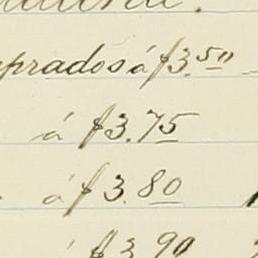 prados á $3.50
á $3.75
á $3.80
á $3.90